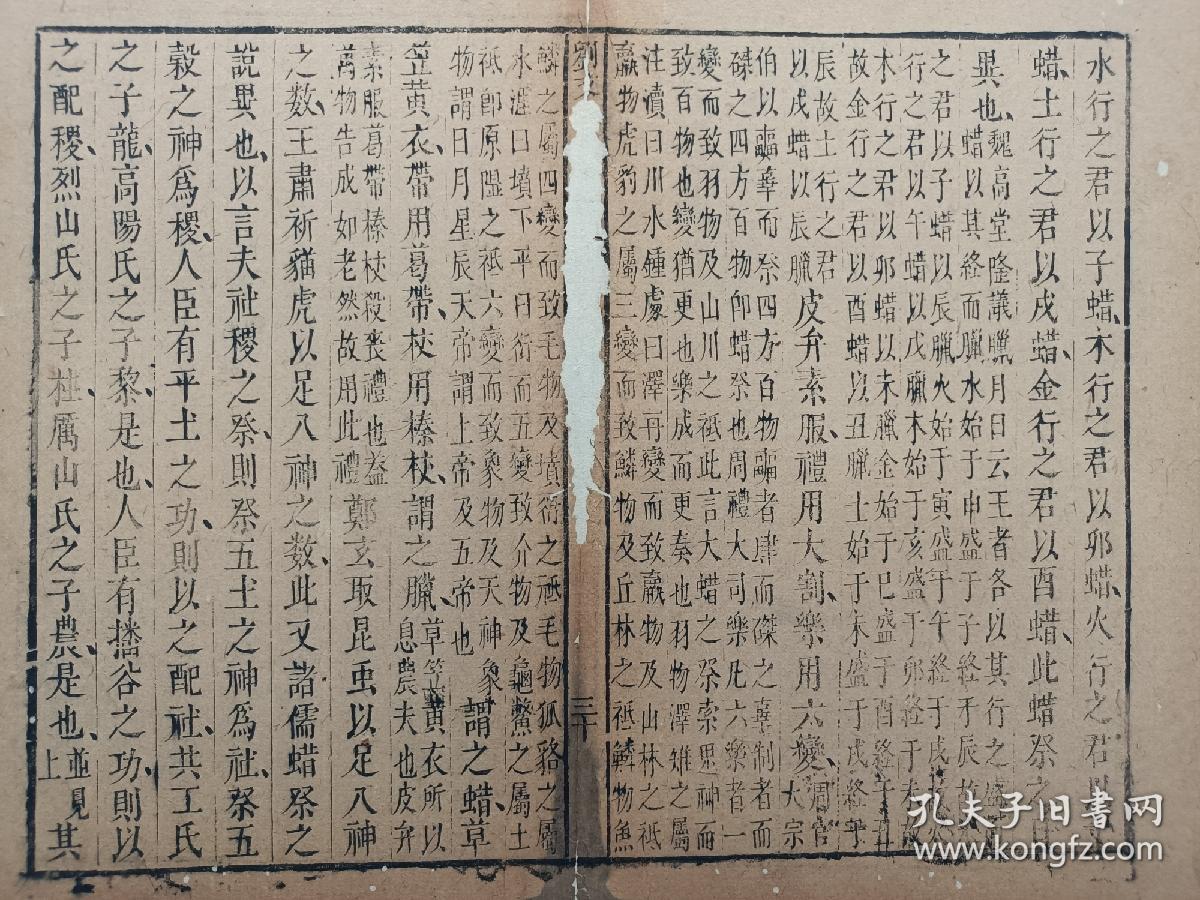 水行之君以子蜡木行之君以卯蜡火行之君以
蜡土行之君以戌蜡金行之君以酉蜡此蜡祭之
異也魏高堂隆議臘月日云王者各以其行之盛
蜡以其終而臘水始于申盛于子終于辰故
之君以子蜡以辰臘火始于寅盛于午終于戌火
行之君以午蜡以戌臘木始于亥盛于卯終于未
木行之君以卯蜡以未臘金始于巳盛于酉終于丑
故金行之君以酉蜡以丑臘土始于未盛于戌終于
辰故土行之君
以戌蜡以辰臘皮弁素服禮用大割樂用六變周官
大宗
伯以疈辜而祭四方百物疈者肆而磔之辜制者而
磔之四方百物卽蜡祭也周禮大司樂凡六樂者一
變而致羽物及山川之祗此言大蜡之祭索思神而
致百物也變猶更也樂成而更奏也羽物澤雉之屬
注瀆曰川水鍾處曰澤再變而致臝物及山林之祗
臝物虎豹之屬三變而致鱗物及丘林之祗鱗物魚
三十
鱗之屬四變而致毛物及墳衍之祗毛物狐貉之屬
水涯曰墳下平曰衍而五變致介物及龜鱉之屬土
祗卽原隰之祗六變而致象物及天神象
物謂日月星辰天帝謂上帝及五帝也謂之蜡草
笠黃衣帶用葛帶杖用榛杖謂之臘草笠黃衣所以
息農夫也皮弁
素服葛帶榛杖殺喪禮也蓋
萬物告成如老然故用此禮鄭玄取昆虫以足八神
之数王肅祈貓虎以足八神之数此又諸儒蜡祭之
說異也以言夫社稷之祭則祭五土之神爲社祭五
穀之神爲稷人臣有平土之功則以之配社共工氏
之子龍高陽氏之子黎是也人臣有播谷之功則以
之配稷烈山氏之子柱厲山氏之子農是也並見
上其
孔夫子旧書网
www.kongfz.com